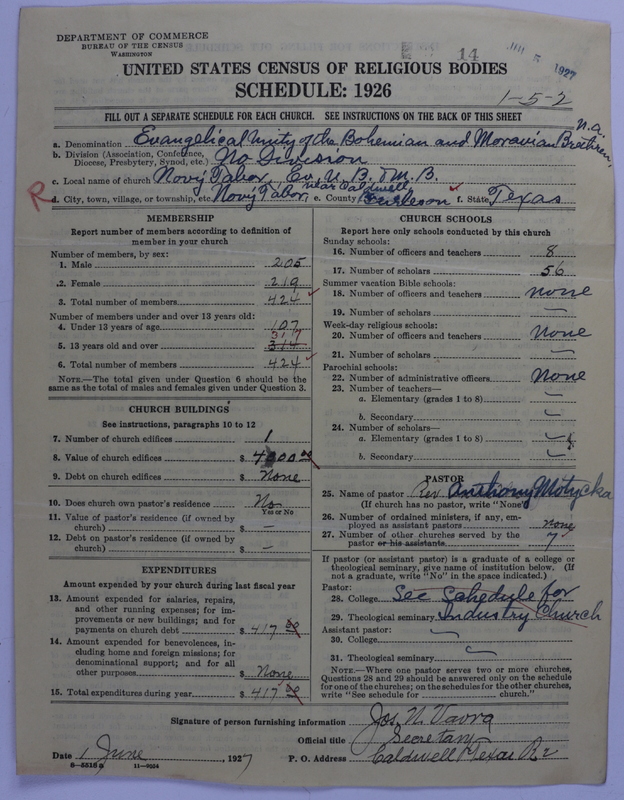 DEPARTMENT OF COMMERCE
BUREAU OF THE CENSUS
WASHINGTON
14
5 1927
UNITED STATES CENSUS OF RELIGIOUS BODIES
SCHEDULE: 1926
1-5-2
FILL OUT A SEPARATE SCHEDULE FOR EACH CHURCH. SEE INSTRUCTIONS ON THE BACK OF THIS SHEET
n.a.
a. Denomination Evangelical Unity of the Bohemian and Moravian Brethren,
b. Division (Association, Conference, Diocese, Presbytery, Synod, etc.) No Division
c. Local name of church Nový Tabor, Ev. U. B. & M. B.
R d. City, town, village, or township, etc. Nový Tabor, near Caldwell e. County Burleson f. State Texas
MEMBERSHIP
Report number of members according to definition of
member in your church
Number of members, by sex:
1. Male 205
2. Female 219
3. Total number of members 424
Number of members under and over 13 years old:
4. Under 13 years of age 107
317
5. 13 years old and over 314
6. Total number of members 424
NOTE.—The total given under Question 6 should be the
same as the total of males and females given under Question 3.
CHURCH BUILDINGS
See instructions, paragraphs 10 to 12
7. Number of church edifices 1
8. Value of church edifices $ 4000 00
9. Debt on church edifices $ None
10. Does church own pastor's residence No
Yes or No
11. Value of pastor's residence (if owned by
church) $ —
12. Debt on pastor's residence (if owned by
church) $ —
EXPENDITURES
Amount expended by your church during last fiscal year
13. Amount expended for salaries, repairs,
and other running expenses; for im-
provements or new buildings; and for
payments on church debt $ 417 00
14. Amount expended for benevolences, in-
cluding home and foreign missions; for
denominational support; and for all
other purposes $ None
15. Total expenditures during year $ 417 00
CHURCH SCHOOLS
Report here only schools conducted by this church
Sunday schools:
16. Number of officers and teachers 8
17. Number of scholars 56
Summer vacation Bible schools:
18. Number of officers and teachers none
19. Number of scholars —
Week-day religious schools:
20. Number of officers and teachers none
21. Number of scholars —
Parochial schools:
22. Number of administrative officers None
23. Number of teachers—
a. Elementary (grades 1 to 8) —
b. Secondary —
24. Number of scholars—
a. Elementary (grades 1 to 8) —
b. Secondary —
PASTOR
25. Name of pastor Rev. Anthony Motycka
(If church has no pastor, write "None")
26. Number of ordained ministers, if any, em-
ployed as assistant pastors none
27. Number of other churches served by the
pastor or his assistants 7
If pastor (or assistant pastor) is a graduate of a college or
theological seminary, give name of institution below. (If
not a graduate, write "No" in the space indicated.)
Pastor:
28. College See Schedule for
29. Theological seminary Industry Church
Assistant pastor:
30. College —
31. Theological seminary —
NOTE.—Where one pastor serves two or more churches,
Questions 28 and 29 should be answered only on the schedule
for one of the churches; on the schedules for the other churches,
write "See schedule for church."
Signature of person furnishing information Jos. N. Vavra
Official title Secretary
Date 1 June, 1927 P. O. Address Caldwell Texas R2
8-5518a 11-9024